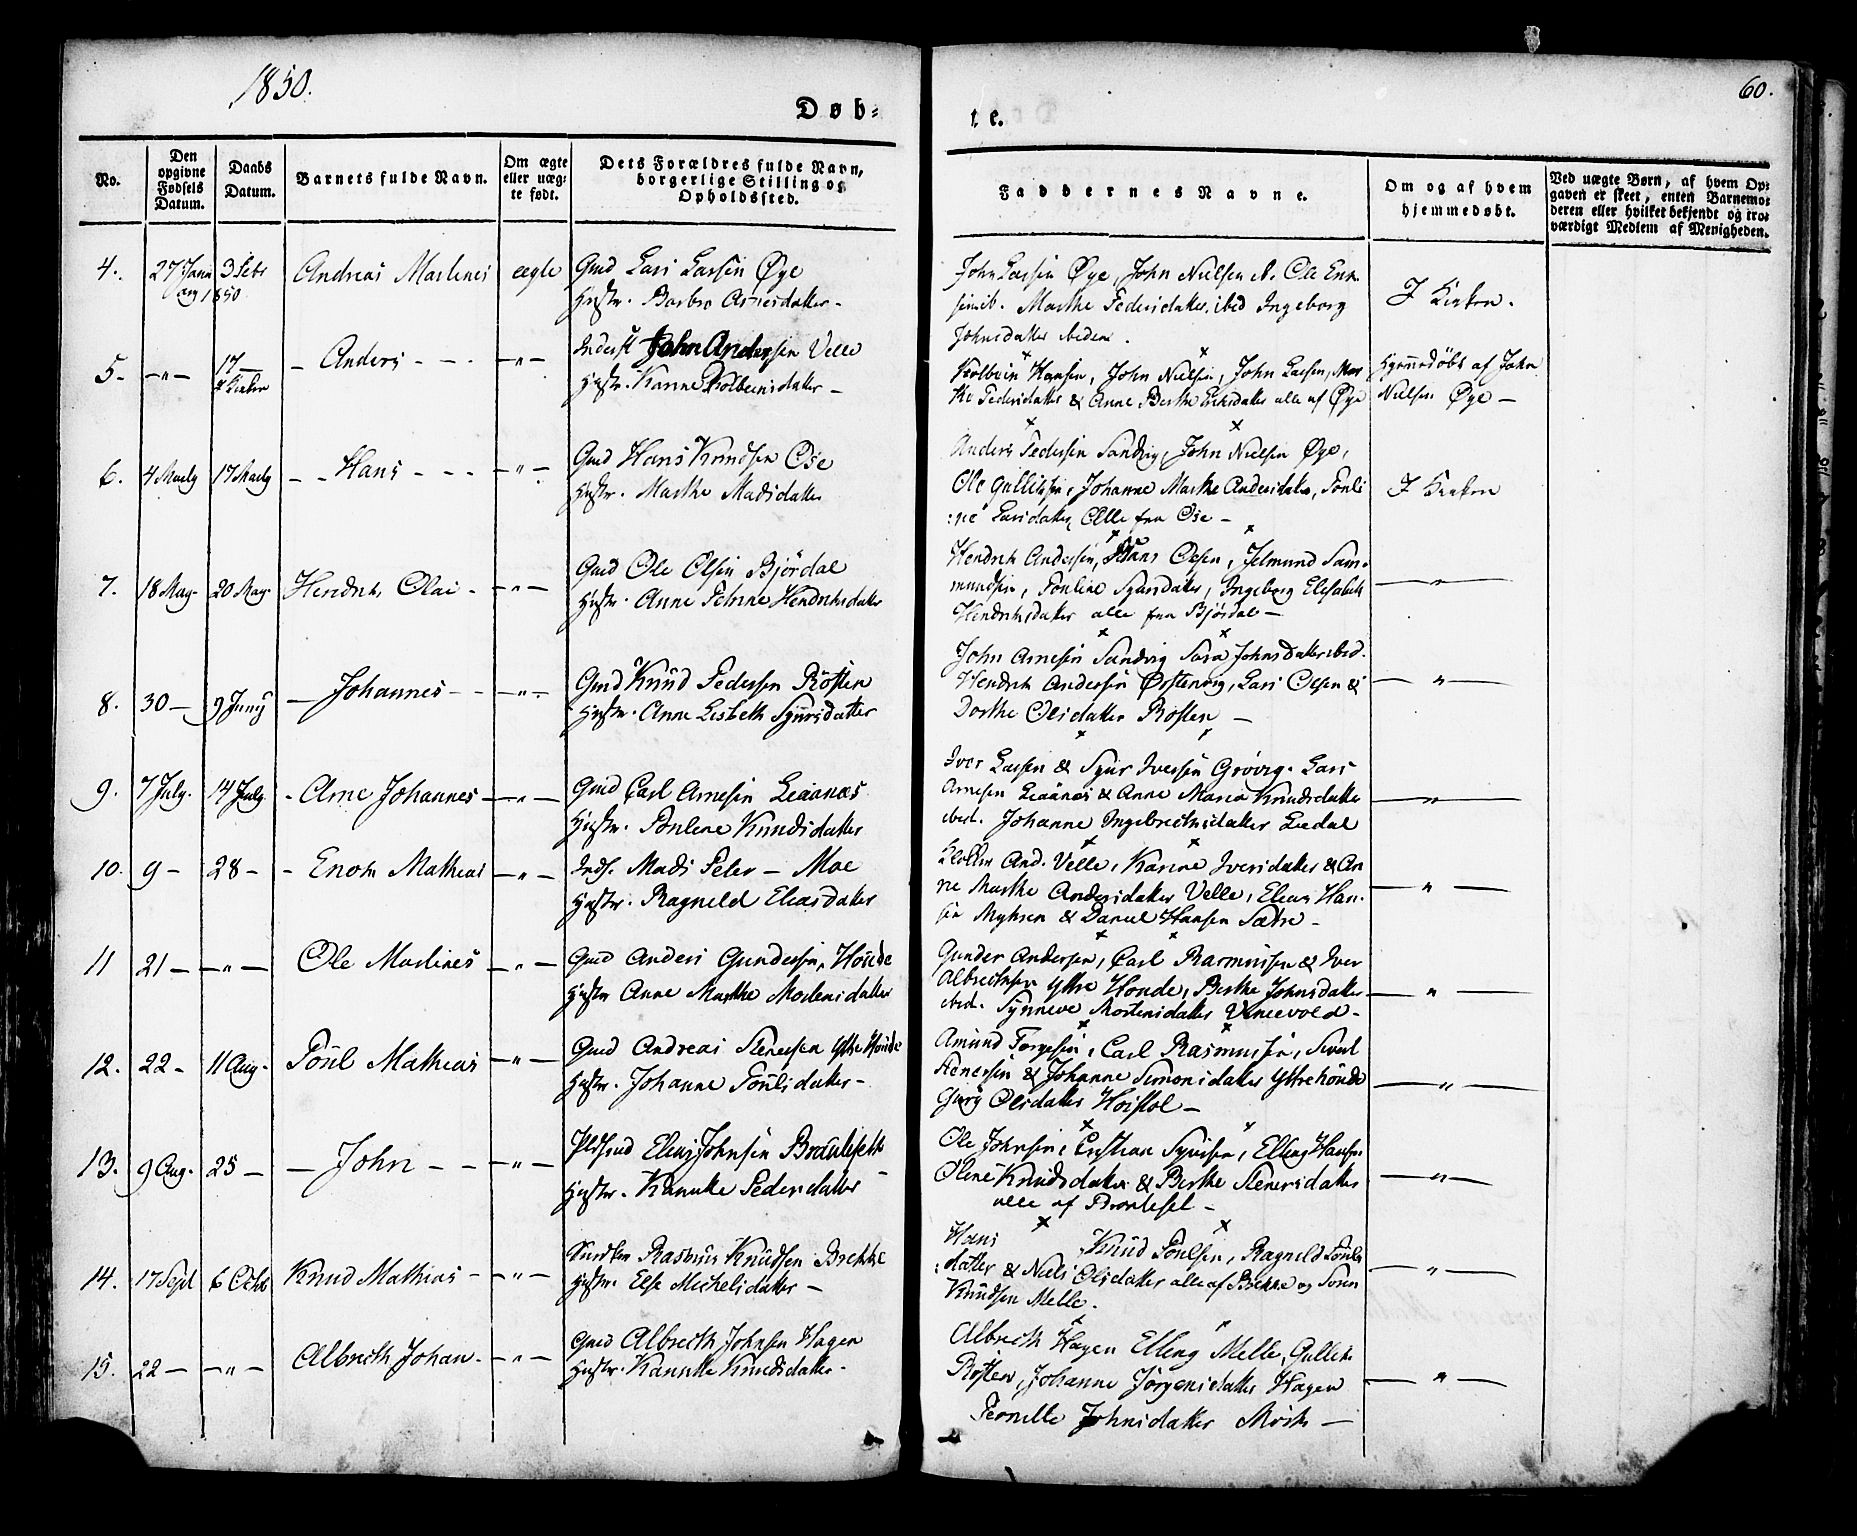 1850.
60.
Døb=
te.
No.
Den opgivne Fødsels Datum.
Daabs Datum.
Barnets fulde Navn.
Om ægte eller uæg= te født.
Dets Forældres fulde Navn, borgerlige Stilling og Opholdssted.
Faddernes Navne.
Om og af hvem hjemmedøbt.
Ved uægte Børn, af hvem Op= gaven er skeet, enten Barnemo= deren eller hvilket bekjendt og tro= værdigt Medlem af Menigheden.
4. 27 Janu 3 Febr Andreas Martines ægte Gmd Lars Larsen Øye
1850 Hustr. Barbro Arnesdatter -
John Larsen Øye, John Nielsen Ole
Marthe Pedersdatter ibid Ingeborg
Johnsdatter ibidem.
I Kirken.
5 - „ - 17 - Anders - - - „ - Inderst John Andersen Velle
Kirken Hustr. Karine Kolbeinsdatter -
Kolbein Hansen, John Nielsen, John Larsen, Mar
the Pedersdatter & Anne Berthe alle af Øye
Hjemmedøbt af John
Nielsen Øye -
6. 4 Marty 17 Marty - - Hans - - - „ - Gmd Hans Knudsen Ose
Hustr. Marthe Madsdatter
Anders Pedersen Sandvig, John Nielsen Øye,
Ole Johanne Marthe Andersdatter, Pouli
:ne Larsdatter, Alle fra Ose -
I Kirken
7. 18 May 20 May Hendrik Olai - - „ - Gmd Ole Olsen Bjørdal
Hustr. Anne Petrine Hendriksdatter
Hendrik Andersen, Hans Olsen,
Pouline Ingeborg Elisabeth
Hendriksdatter alle fra Bjørdal -
- „ -
8. 30 - 9 Juny - Johannes - - - „ - Gmd Knud Pedersen Røsten
Hustr. Anne Lisbeth Syversdatter
John Arnesen Sandvig Sara Johnsdatter ibid.
Hendrik Andersen Ørstenvig, Lars Olsen &
Dorthe Olsdatter Røsten -
- „ -
9. 7 July. 14 July - Arne Johannes - „ - Gmd Carl Arnesen Leaanæs
Hustr. Poulene Knudsdatter
Iver Larsen & Syver Iversen Grøvig. Lars
Arnesen Leaanæs & Anne Maria Knudsdatter
ibid. Johanne Ingebrethsdatter Liedal
- „ -
10. 9 - 28 - - Enok Mathias - „ - Inds. Mads Peter - Moe
Hustr. Ragnild Eliasdatter
And. Velle, Karine Iversdatter & An
ne Marthe Andersdatter Velle, Elias Han-
sen & Daniel Hansen Sætre -
- „ -
11 21 - - „ - Ole Martines - „ - Gmd Anders Gundersen, Houde
Hustr Anne Marthe Mortensdatter
Gunder Andersen, Carl Rasmusen & Iver
Albrethsen Yttre Houde, Berthe Johnsdatter
ibid. Synneve Mortensdatter
- „ -
12. 22 - 11 Aug. Poul Mathias - „ - Gmd Andreas Stenersen Yttre Houde
Hustr. Johanne Poulsdatter -
Amund Carl Rasmusen, Sivert
Stenersen & Johanne Simonsdatter Yttrehoude
Olsdatter
- „ -
13. 9 Aug. 25 - - John - - - „ - Elias Johnsen
Hustr. Kanutte Pedersdatter -
Ole Johnsen, Cristian Elling Hansen
Oline Knudsdatter & Berthe Stenersdatter
alle af
- „ -
14. 17 Sept 6 Octb Knud Mathias - - „ - Rasmus Knudsen Brekke
Hustr. Else Michelsdatter -
Hans Knud Poulsen, Ragnild Pouls
:datter & Niels Olsdatter alle af Brekke og Søren
Knudsen Melle.
- „ -
15. 22 - - „ - Albreth Johan - - „ - Gmd Albreth Johnsen Hagen
Hustr. Kanutte Knudsdatter -
Albreth Hagen Elling Melle,
Røsten, Johanne Jørgensdatter Hagen
Pernille Johnsdatter Mork -
- „ -